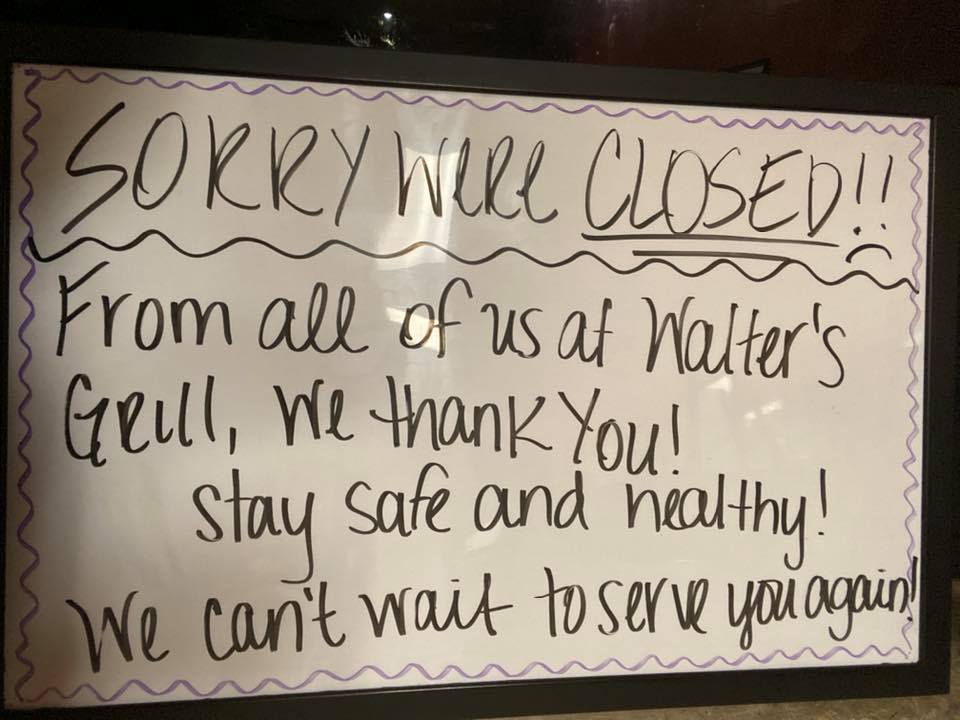 SORRY WERE CLOSED!!
From all of us at Walter's
Grill, We thank You!
stay safe and healthy!
We can't wait to serve you again!